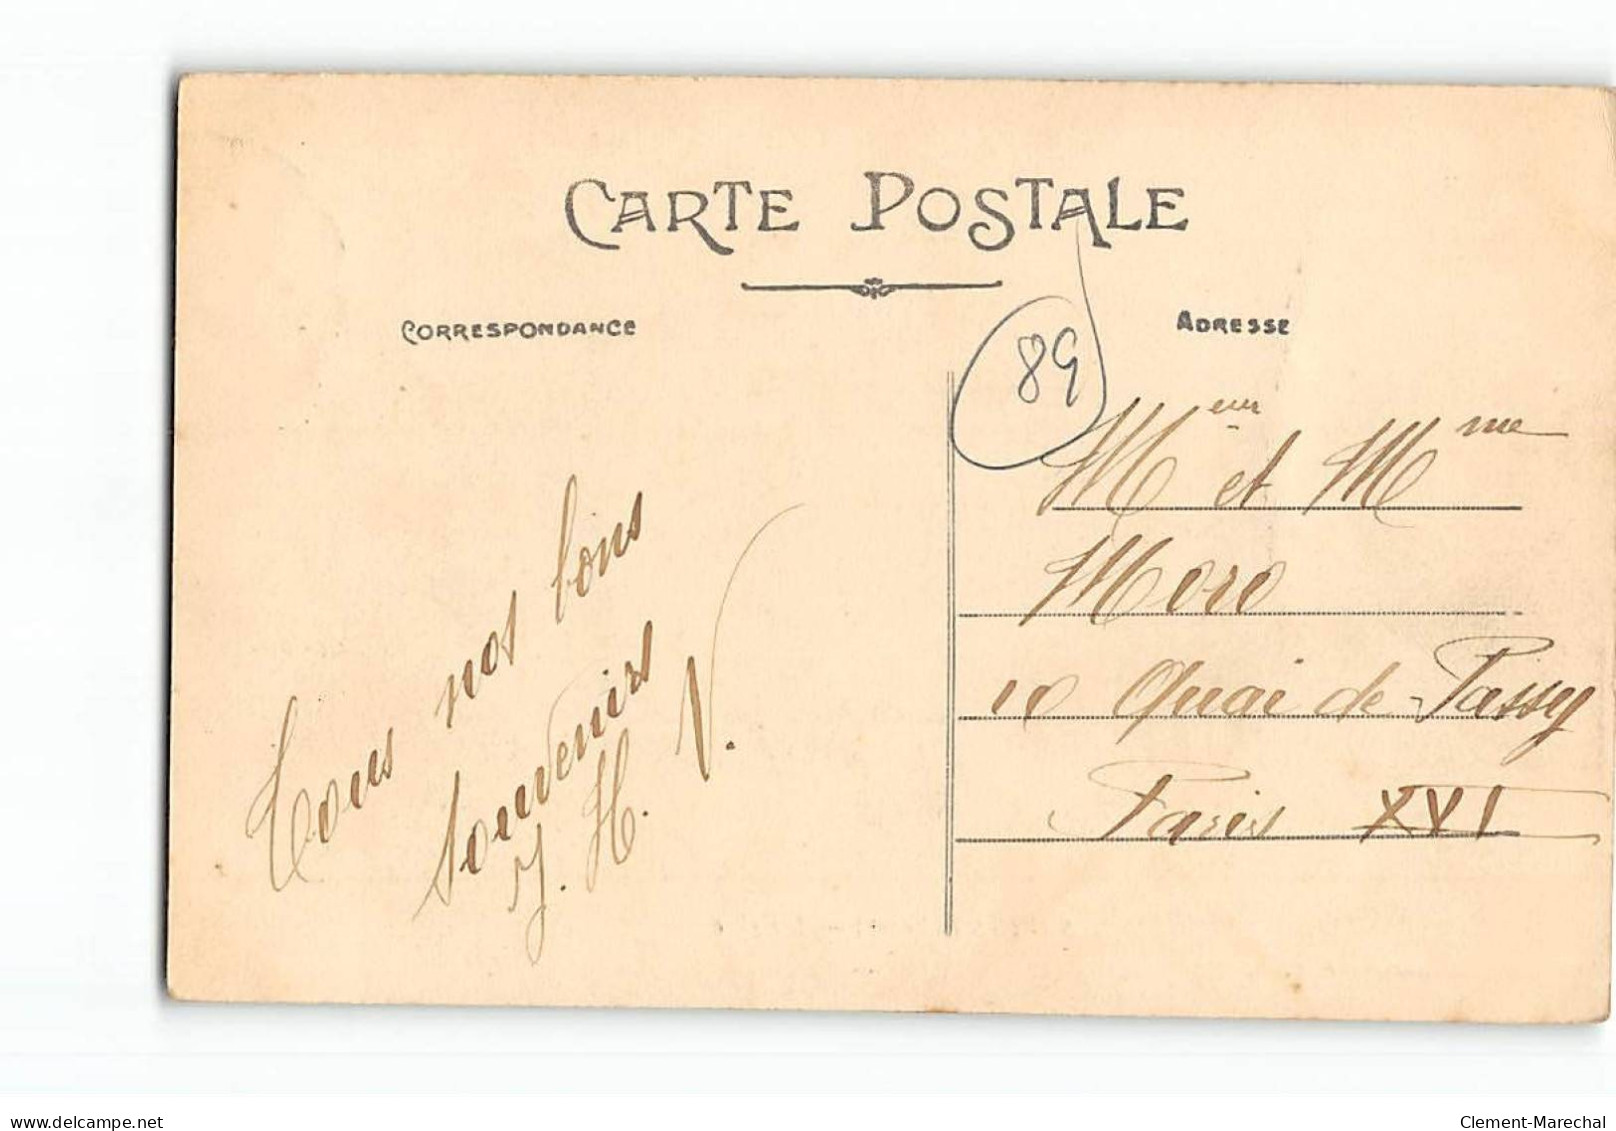 CARTE POSTALE
CORRESPONDANCE
ADRESSE
89
Tous nos bons
souvenirs
J. H. V.
Meur et Mme
Moro
10 Quai de Passy
Paris XVI
delcampe.net
Clement-Marechal